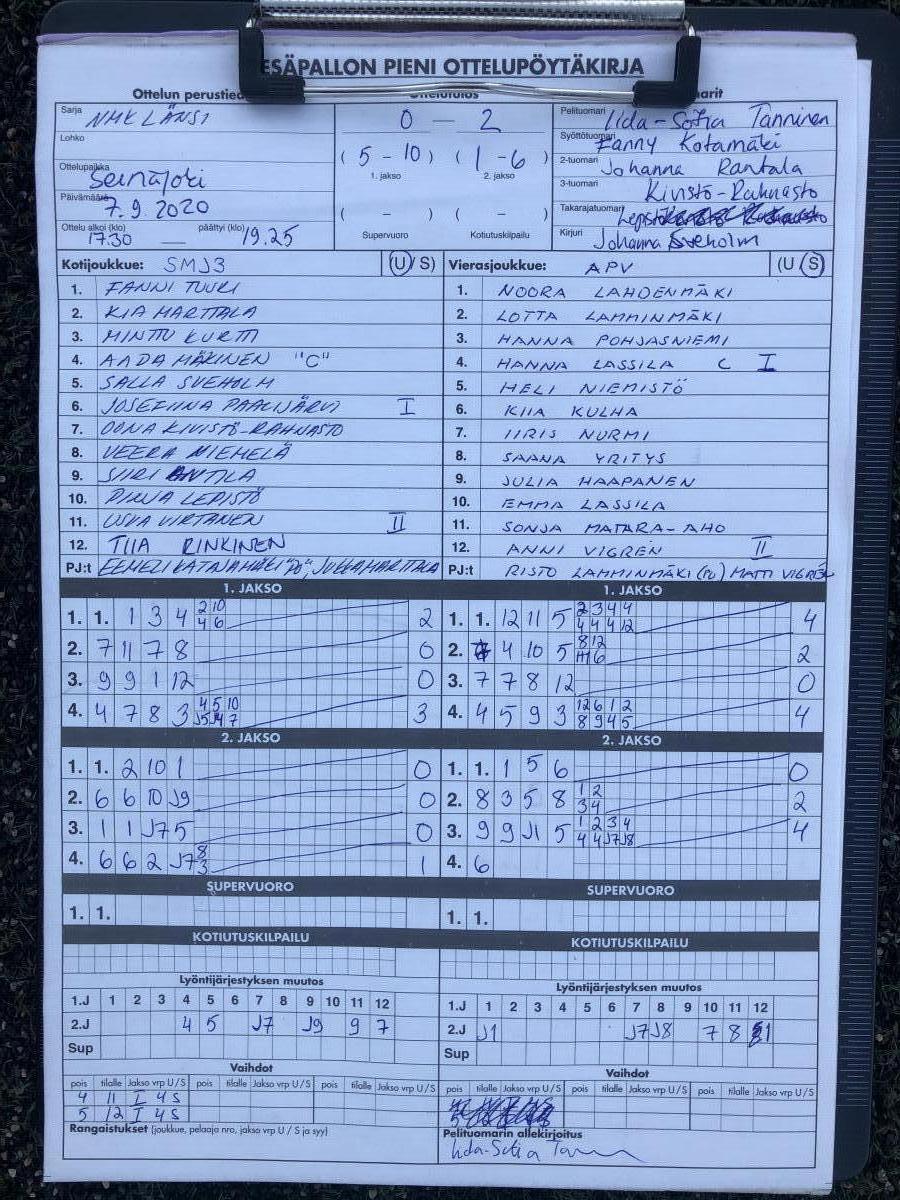 ESÄPALLON PIENI OTTELUPÖYTÄKIRJA
Ottelun perustied
Ottelutulos
Sarja NMK LÄNSI
Lohko
Ottelupaikka Seinäjoki
Päivämäärä 7.9.2020
Ottelu alkoi (klo) 17.30 — päättyi (klo) 19.25
0 — 2
( 5 - 10 ) ( 1 - 6 )
1. jakso 2. jakso
( - ) ( - )
Supervuoro Kotiutuskilpailu
Pelituomari Iida-Sofia Tanninen
Syöttötuomari Fanny Kotamäki
2-tuomari Johanna Rantala
3-tuomari Kivistö-Rahnasto
Takarajatuomari
Kirjuri Johanna Sveholm
Kotijoukkue: SMJ3 (U/S)
1. FANNI TUURI
2. KIA HARTTALA
3. MINTTU KURTTI
4. AADA MÄKINEN "C"
5. SALLA SVEHOLM
6. JOSEFIINA PAALIJÄRVI I
7. OONA KIVISTÖ-RAHNASTO
8. VEERA NIEMELÄ
9. SIIRI ANTILA
10. PINJA LEPISTÖ
11. USVA VIRTANEN II
12. TIIA RINKINEN
PJ:t EEMELI KATAJAMÄKI "PJ", JUKKA HARTTALA
Vierasjoukkue: APV (U/S)
1. NOORA LAHDENMÄKI
2. LOTTA LAMMINMÄKI
3. HANNA POHJASNIEMI
4. HANNA LASSILA C I
5. HELI NIEMISTÖ
6. KIIA KULHA
7. IIRIS NURMI
8. SAANA YRITYS
9. JULIA HAAPANEN
10. EMMA LASSILA
11. SONJA MATARA-AHO
12. ANNI VIGREN II
PJ:t RISTO LAMMINMÄKI (PJ) MATTI VIGREN
1. JAKSO
1. 1. 1 3 4 2 10 4 6 2
2. 7 11 7 8 0
3. 9 9 1 12 0
4. 4 7 8 3 4 5 10 J5 J4 7 3
2. JAKSO
1. 1. 2 10 1 0
2. 6 6 10 J9 0
3. 1 1 J7 5 0
4. 6 6 2 J7 8 3 1
SUPERVUORO
1. 1.
KOTIUTUSKILPAILU
1. JAKSO
1. 1. 12 11 5 2 3 4 4 4 4 4 12 4
2. 4 10 5 8 12 11 6 2
3. 7 7 8 12 0
4. 4 5 9 3 12 6 1 2 8 9 4 5 4
2. JAKSO
1. 1. 1 5 6 0
2. 8 3 5 8 1 2 3 4 2
3. 9 9 J1 5 1 2 3 4 4 4 J7 J8 4
4. 6
SUPERVUORO
1. 1.
KOTIUTUSKILPAILU
Lyöntijärjestyksen muutos
1.J 1 2 3 4 5 6 7 8 9 10 11 12
2.J 4 5 J7 J9 9 7
Sup
Vaihdot
pois tilalle Jakso vrp U/S pois tilalle Jakso vrp U/S pois tilalle Jakso vrp U/S
4 11 I 4S
5 12 I 4S
Rangaistukset (joukkue, pelaaja nro, jakso vrp U/S ja syy)
Lyöntijärjestyksen muutos
1.J 1 2 3 4 5 6 7 8 9 10 11 12
2.J J1 J7 J8 7 8
Sup
Vaihdot
pois tilalle Jakso vrp U/S pois tilalle Jakso vrp U/S pois tilalle Jakso vrp U/S
Pelituomarin allekirjoitus
Iida-Sofia